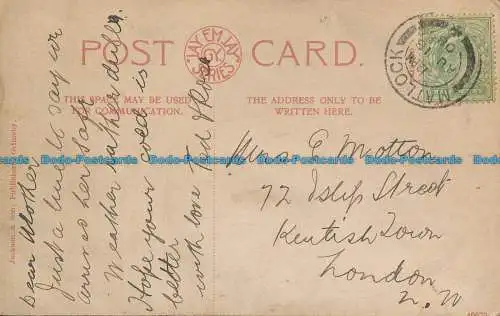 POST CARD.
"JAY EM JAY" SERIES
THIS SPACE MAY BE USED
FOR COMMUNICATION.
THE ADDRESS ONLY TO BE
WRITTEN HERE.
MATLOCK
Dear Mother
Just a line to say we
arrived here safe
Weather rather dull.
Hope your cold is
better
with love Ted & Rose
Mrs E Motton
72 Islip Street
Kentish Town
London
N.W
Jackson & Son, Publishers, Grimsby
Bodo-Postcards Bodo-Postcards Bodo-Postcards Bodo-Postcards Bodo-Postcards